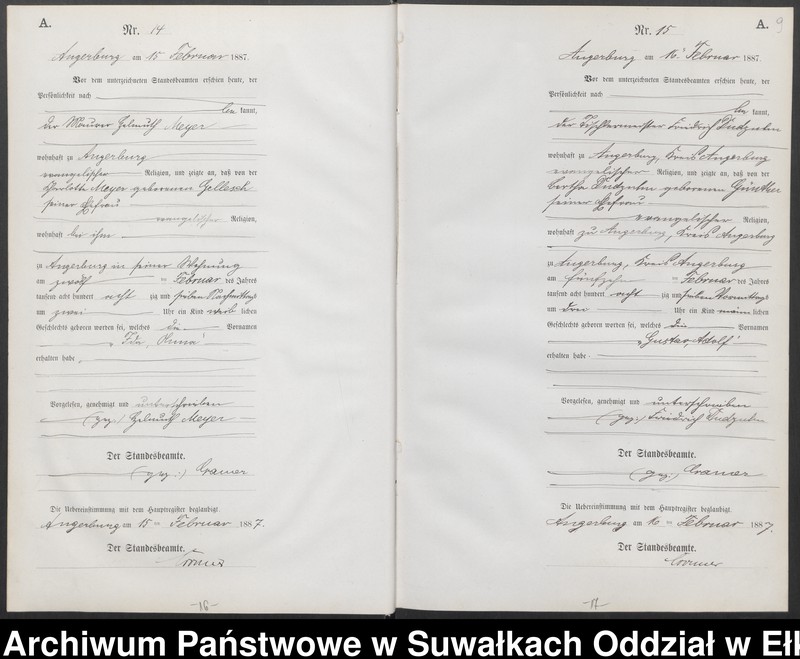 A.
Nr. 14
Angerburg am 15 Februar 1887.
Vor dem unterzeichneten Standesbeamten erschien heute, der
Persönlichkeit nach
be kannt,
der Maurer Helmuth Meyer
wohnhaft zu Angerburg
evangelischer Religion, und zeigte an, daß von der
Charlotte Meyer geborenen
seiner Ehefrau
evangelischer Religion,
wohnhaft bei ihm
zu Angerburg in seiner Wohnung
am zwölf ten Februar des Jahres
tausend acht hundert acht zig und sieben Nachmittags
um zwei Uhr ein Kind weib lichen
Geschlechts geboren worden sei, welches die Vornamen
"Ida, Anna"
erhalten habe.
Vorgelesen, genehmigt und unterschrieben
(gez.) Helmuth Meyer
Der Standesbeamte.
(gez.) Cramer
Die Uebereinstimmung mit dem Hauptregister beglaubigt.
Angerburg am 15 ten Februar 1887.
Der Standesbeamte.
Cramer
-16-
A.
9
Nr. 15
Angerburg am 16 Februar 1887.
Vor dem unterzeichneten Standesbeamten erschien heute, der
Persönlichkeit nach
be kannt,
der Tischlermeister Friedrich
wohnhaft zu Angerburg, Kreis Angerburg
evangelischer Religion, und zeigte an, daß von der
Bertha geborenen Günther
seiner Ehefrau
evangelischer Religion,
wohnhaft zu Angerburg, Kreis Angerburg
zu Angerburg, Kreis Angerburg
am fünfzehn ten Februar des Jahres
tausend acht hundert acht zig und sieben Vormittags
um drei Uhr ein Kind männ lichen
Geschlechts geboren worden sei, welches die Vornamen
"Gustav, Adolf"
erhalten habe.
Vorgelesen, genehmigt und unterschrieben
(gez.) Friedrich
Der Standesbeamte.
(gez.) Cramer
Die Uebereinstimmung mit dem Hauptregister beglaubigt.
Angerburg am 16 ten Februar 1887.
Der Standesbeamte.
Cramer
-17-
Archiwum Państwowe w Suwałkach Oddział w Ełk